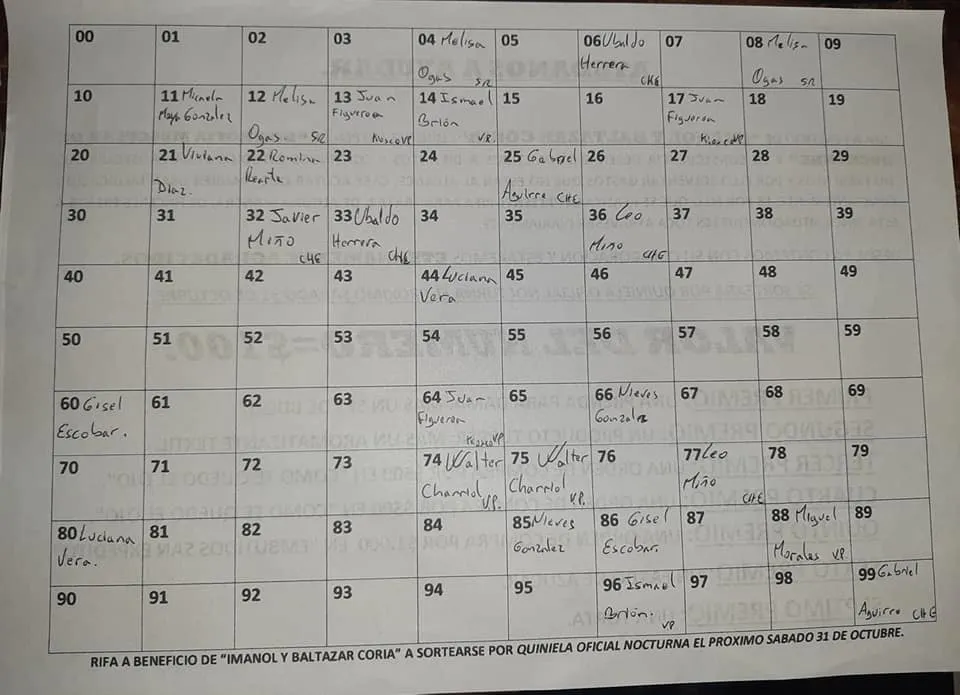 00 01 02 03 04 Melisa Ogas SR 05 06 Ubaldo Herrera CHE 07 08 Melisa Ogas SR 09
10 11 Micaela Maya Gonzalez 12 Melisa Ogas SR 13 Juan Figueroa Kiosco VP 14 Ismael Brión V.P. 15 16 17 Juan Figueroa Kiosco VP 18 19
20 21 Viviana Diaz. 22 Romina 23 24 25 Gabriel Aguirre CHE 26 27 28 29
30 31 32 Javier Miño CHE 33 Ubaldo Herrera CHE 34 35 36 Leo Miño CHE 37 38 39
40 41 42 43 44 Luciana Vera 45 46 47 48 49
50 51 52 53 54 55 56 57 58 59
60 Gisel Escobar. 61 62 63 64 Juan Figueroa Kiosco VP 65 66 Nieves Gonzalez 67 68 69
70 71 72 73 74 Walter Charriol V.P. 75 Walter Charriol V.P. 76 77 Leo Miño CHE 78 79
80 Luciana Vera. 81 82 83 84 85 Nieves Gonzalez 86 Gisel Escobar. 87 88 Miguel Morales V.P. 89
90 91 92 93 94 95 96 Ismael Brión. VP 97 98 99 Gabriel Aguirre CHE
RIFA A BENEFICIO DE "IMANOL Y BALTAZAR CORIA" A SORTEARSE POR QUINIELA OFICIAL NOCTURNA EL PROXIMO SABADO 31 DE OCTUBRE.